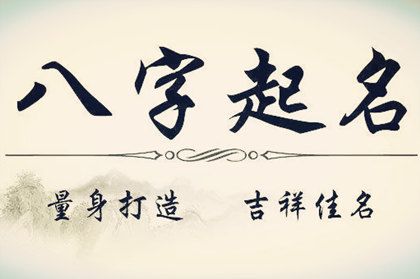 八字起名
量身打造 吉祥佳名